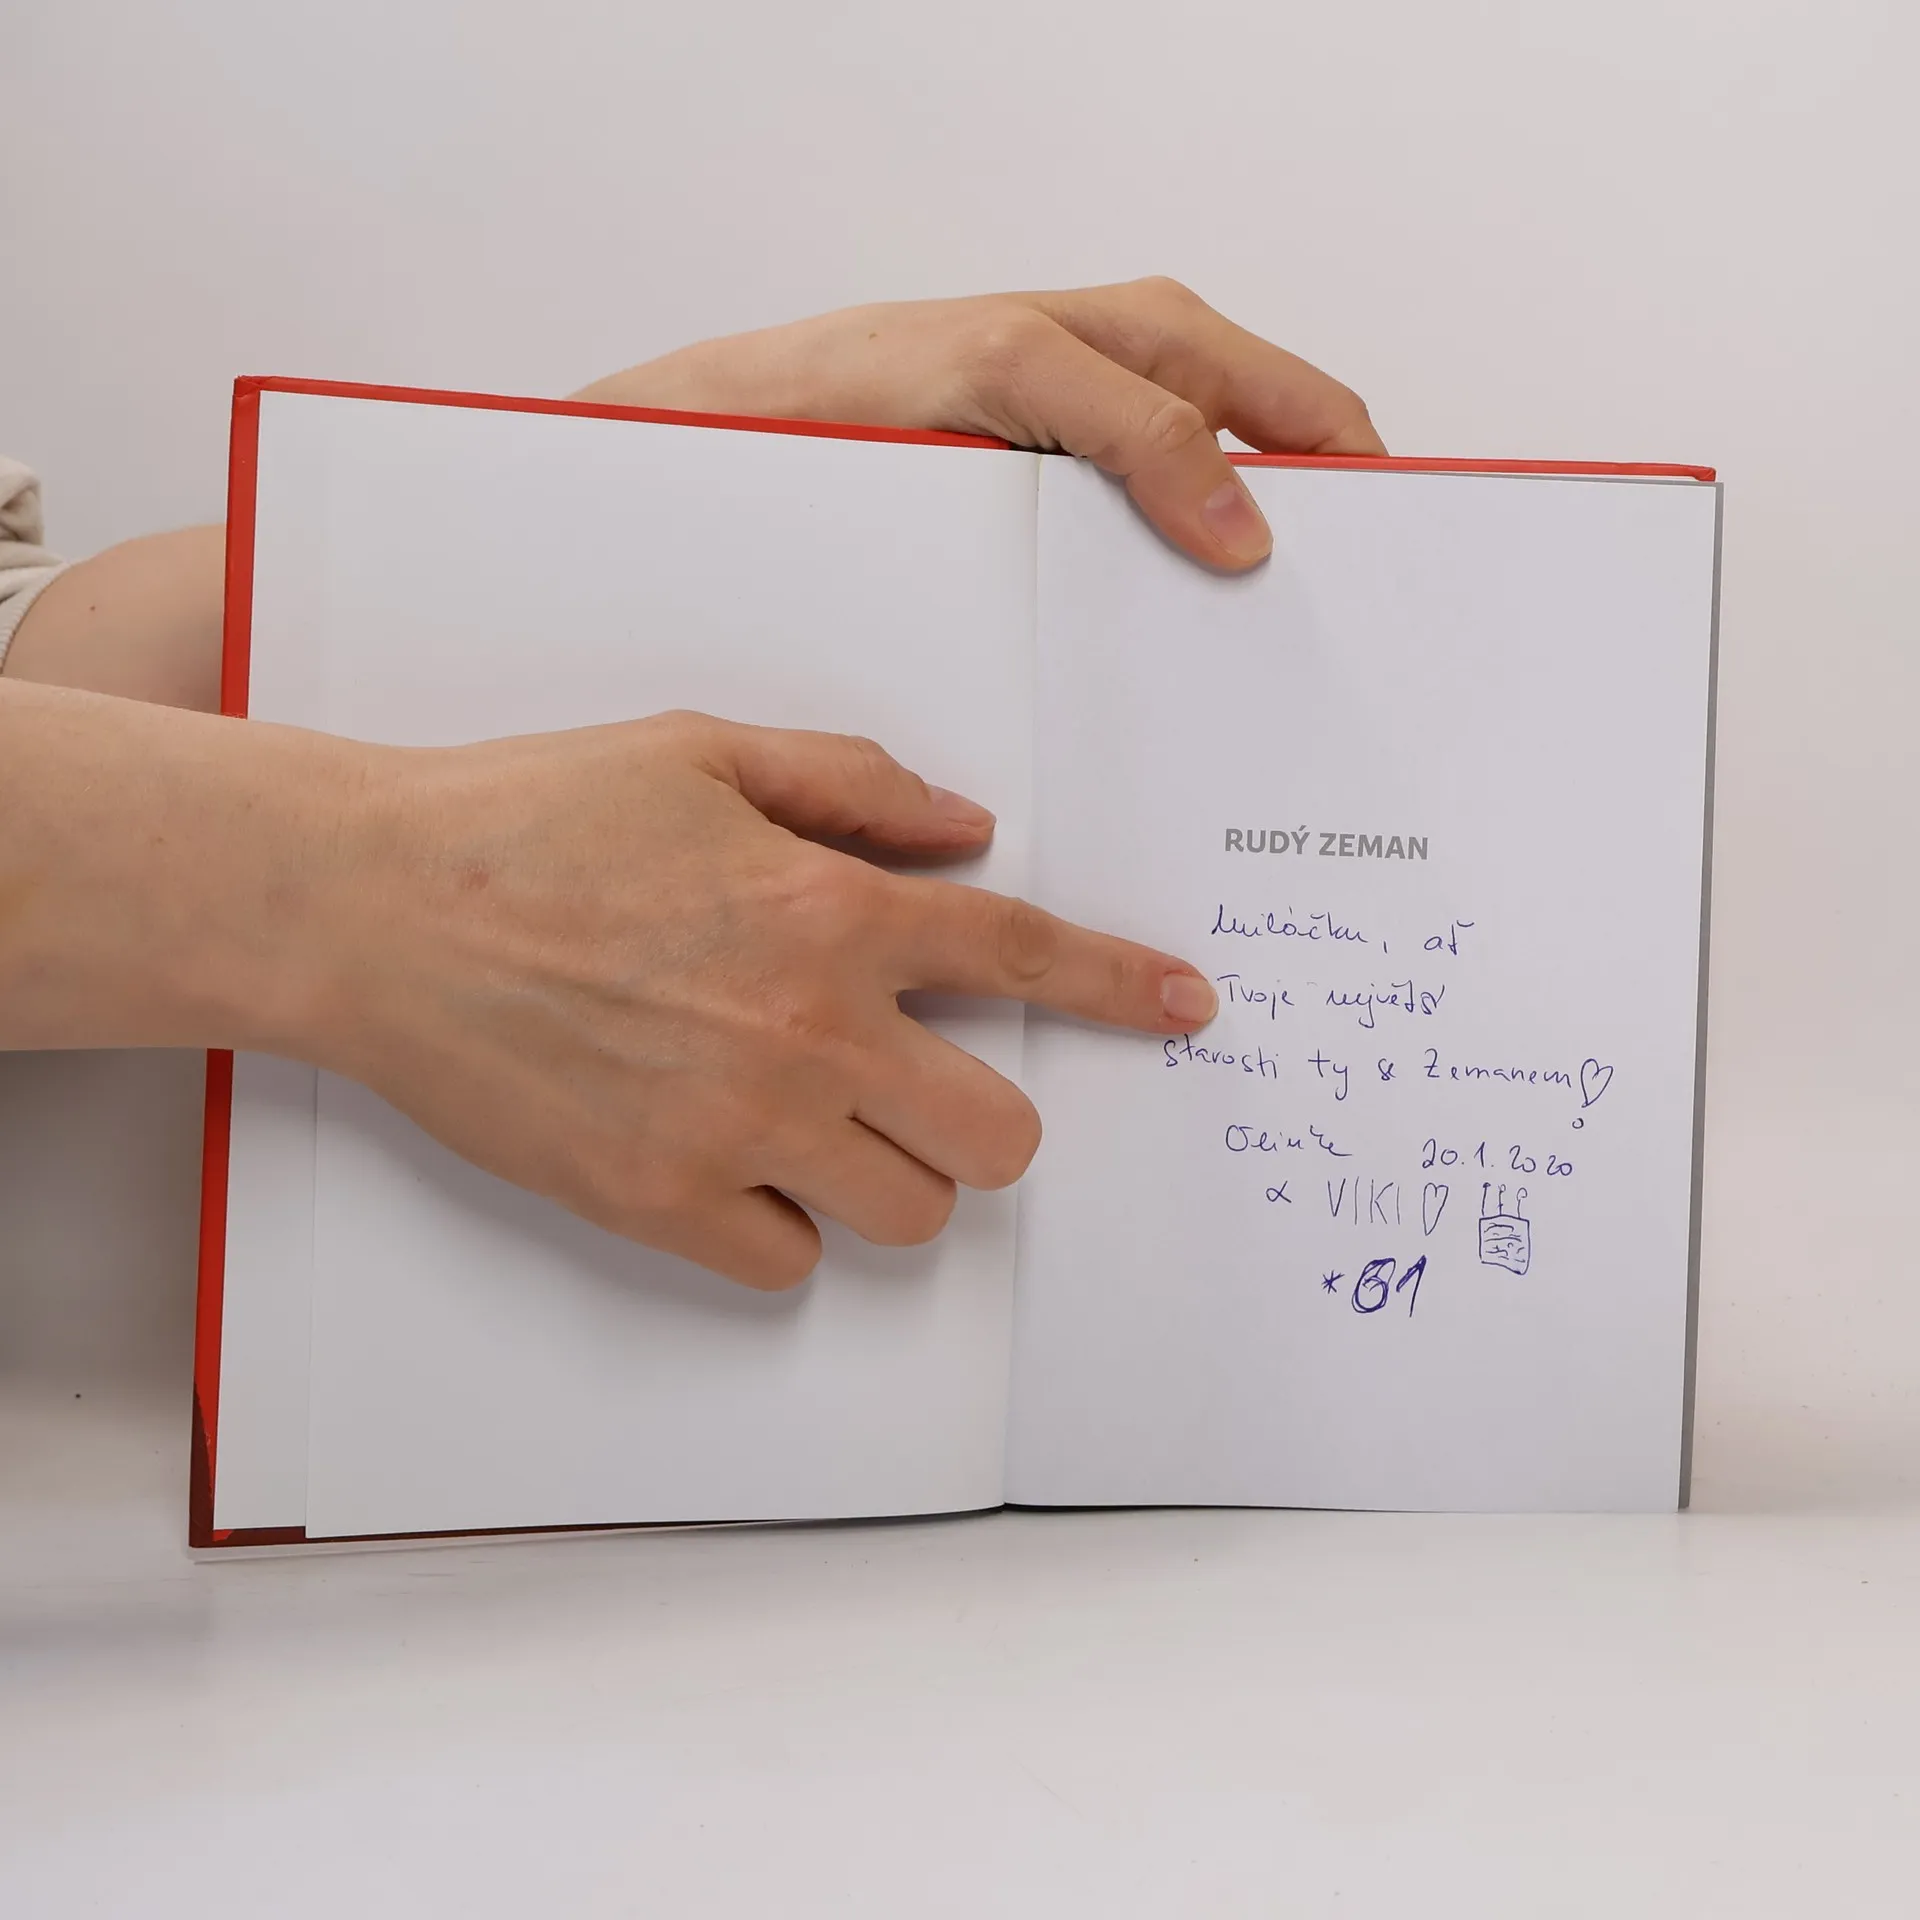 RUDÝ ZEMAN
Miláčku, ať
Tvoje největší
starosti ty se Zemanem
20.1.2020
VIKI